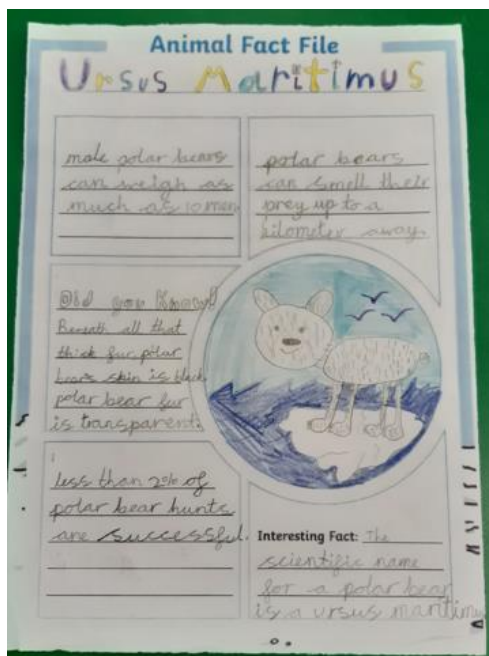 Animal Fact File
Ursus Maritimus
male polar bears
can weigh as
much as 10 men
polar bears
can smell their
prey up to a
kilometer away.
Did you know?
Beneath all that
thick fur polar
bears skin is black
polar bear fur
is transparent.
less than 2% of
polar bear hunts
are successful.
Interesting Fact: The
scientific name
for a polar bear
is a ursus maritimus